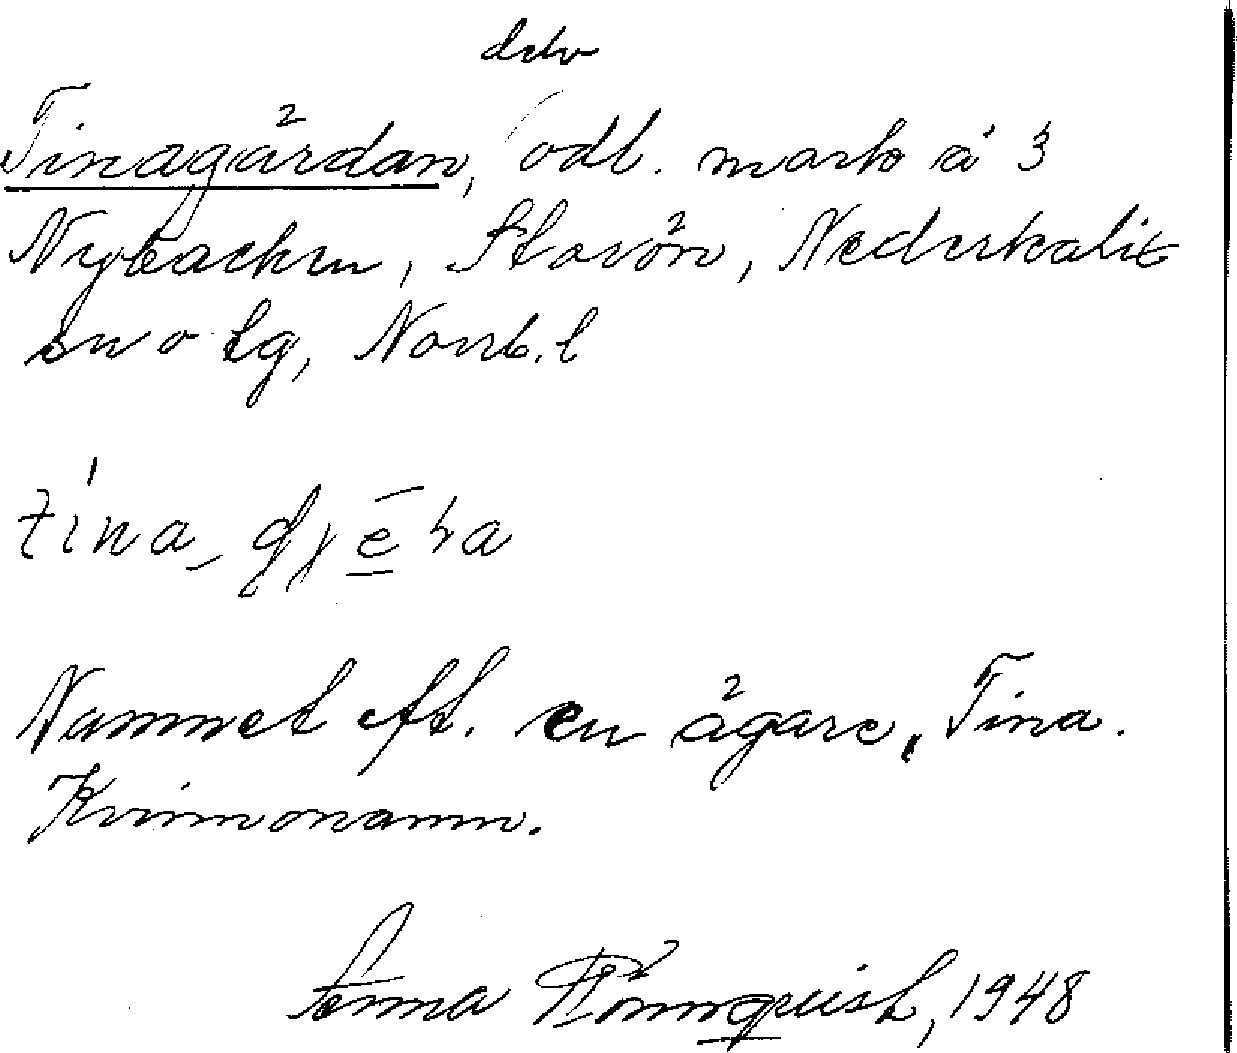 delv
Tinagärdan, odl. mark å 3
Nybacken, Storön, Nederkalix
sn o tg, Norrb. l
Namnet eft. en ägare, Tina.
Kvinnonamn.
Anna Rönnquist, 1948